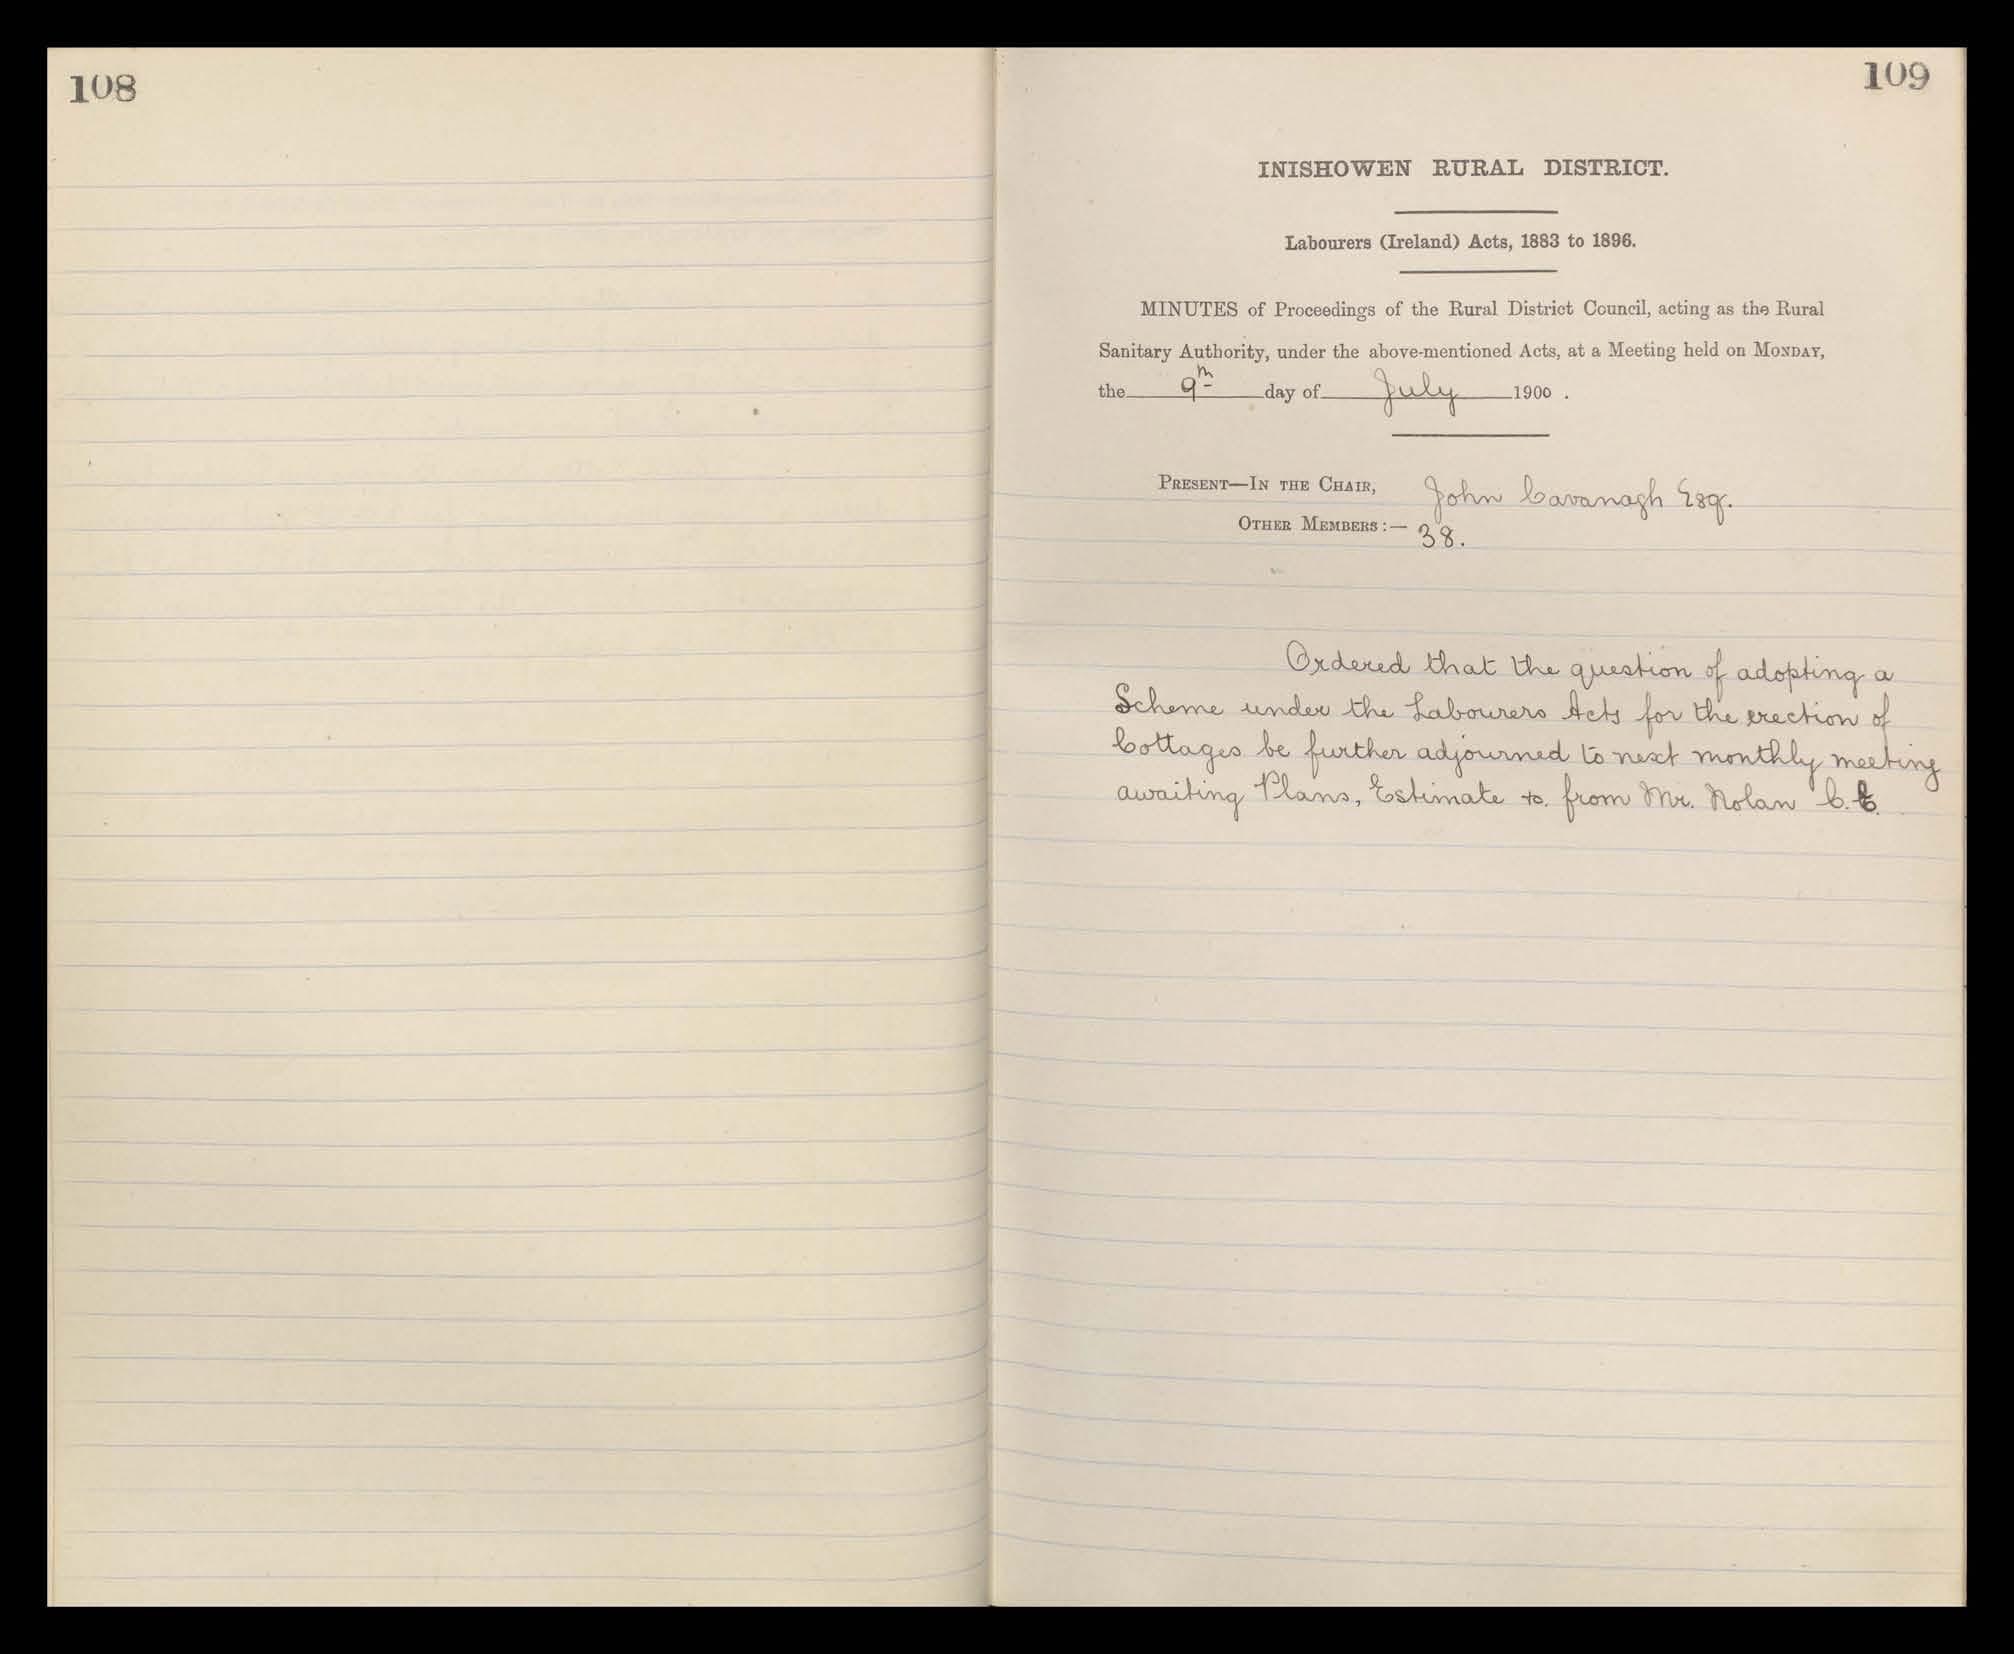 108
109
INISHOWEN RURAL DISTRICT.
Labourers (Ireland) Acts, 1883 to 1896.
MINUTES of Proceedings of the Rural District Council, acting as the Rural
Sanitary Authority, under the above-mentioned Acts, at a Meeting held on MONDAY,
the 9th day of July 1900 .
PRESENT—IN THE CHAIR, John Cavanagh Esq.
OTHER MEMBERS :— 38.
Ordered that the question of adopting a
Scheme under the Labourers Acts for the erection of
Cottages be further adjourned to next monthly meeting
awaiting Plans, Estimate &c. from Mr. Nolan C.E.